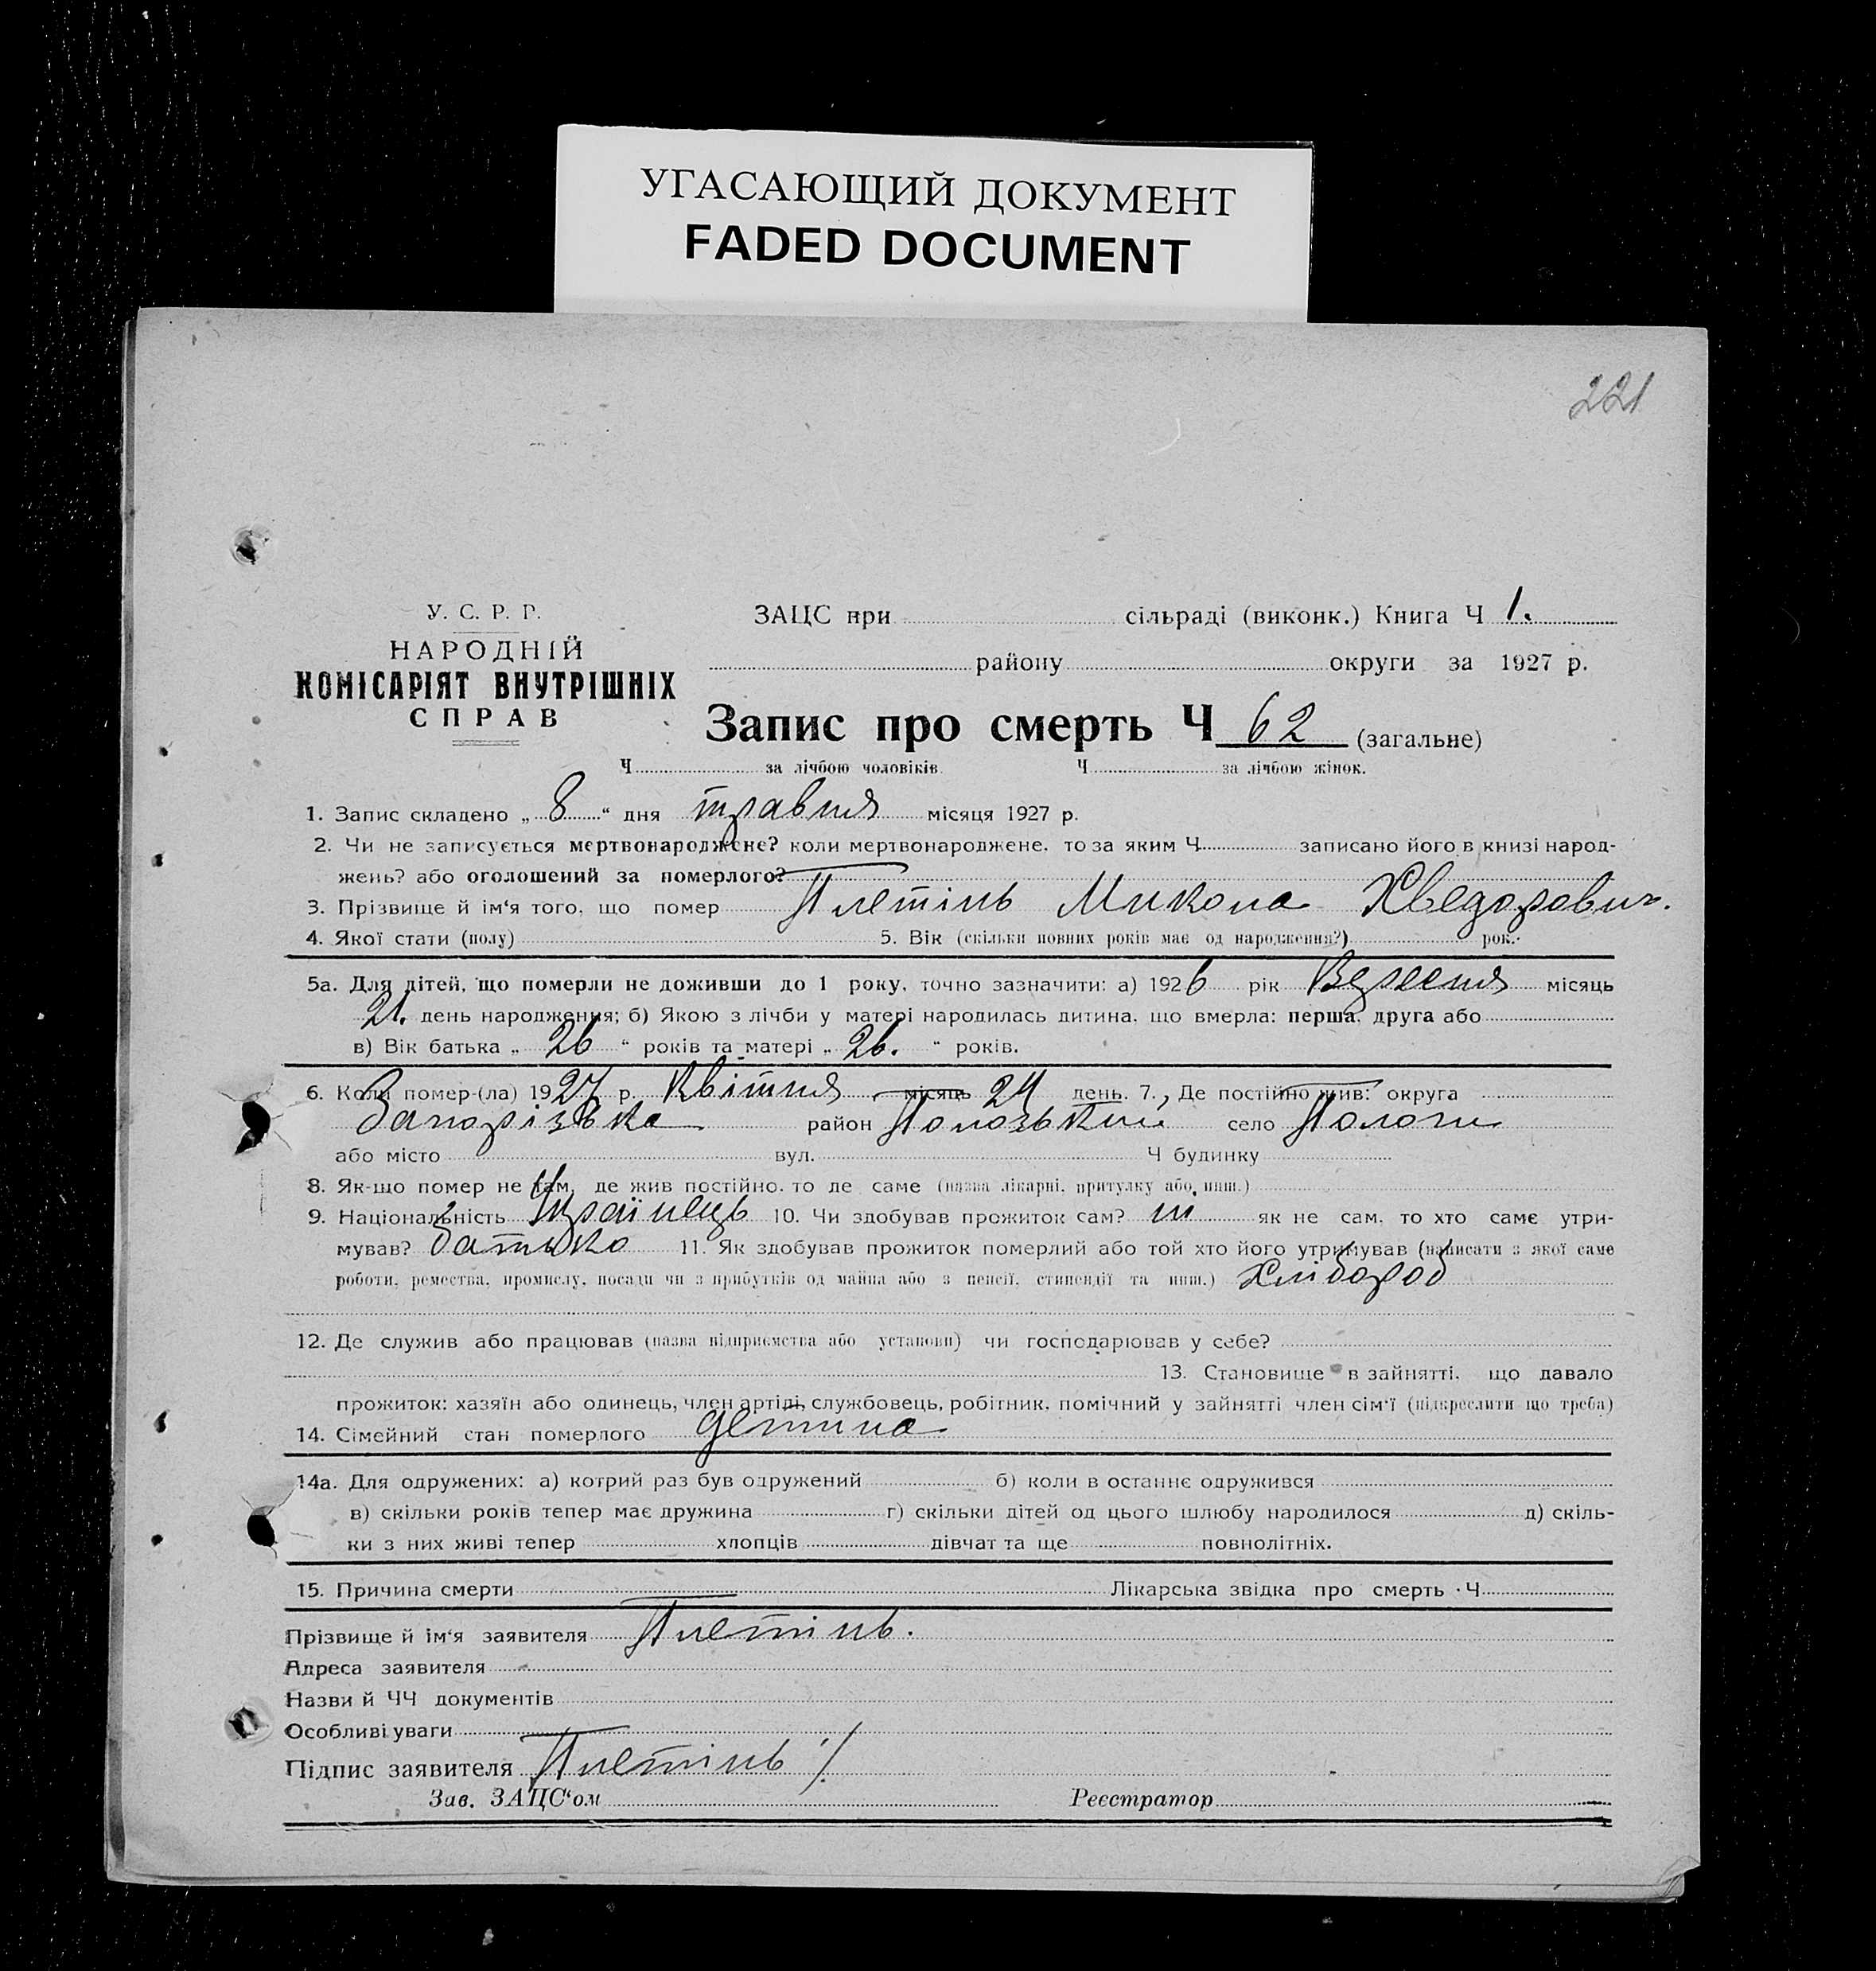 УГАСАЮЩИЙ ДОКУМЕНТ
FADED DOCUMENT
221
У. С. Р. Р.
НАРОДНІЙ
КОМІСАРІЯТ ВНУТРІШНІХ
СПРАВ
ЗАЦС при сільраді (виконк.) Книга Ч 1.
району округи за 1927 р.
Запис про смерть Ч 62 (загальне)
Ч за лічбою чоловіків Ч за лічбою жінок.
1. Запис складено „ 8 “ дня травня місяця 1927 р.
2. Чи не записується мертвонароджене? коли мертвонароджене, то за яким Ч записано його в книзі народ-
жень? або оголошений за померлого?
3. Прізвище й ім'я того, що помер Плетінь Микола Хведорович.
4. Якої стати (полу) 5. Вік (скільки повних років має од народження?) рок.
5а. Для дітей, що померли не доживши до 1 року, точно зазначити: а) 1926 рік Вересня місяць
21. день народження; б) Якою з лічби у матері народилась дитина, що вмерла: перша, друга або
в) Вік батька „ 26 “ років та матері „ 26. “ років.
6. Коли помер-(ла) 1927 р. Квітня місяць 24 день. 7. Де постійно жив: округа
Запорізька район Пологський село Пологи
або місто вул. Ч будинку
8. Як-що помер не там, де жив постійно, то де саме (назва лікарні, притулку або инш.)
9. Національність Українець 10. Чи здобував прожиток сам? ні як не сам, то хто саме утри-
мував? батько 11. Як здобував прожиток померлий або той хто його утримував (написати з якої саме
роботи, ремества, промислу, посади чи з прибутків од майна або з пенсії, стипендії та инш.) Хлібороб
12. Де служив або працював (назва підприємства або установи) чи господарював у себе?
13. Становище в зайнятті, що давало
прожиток: хазяїн або одинець, член артілі, службовець, робітник, помічний у зайнятті член сім'ї (підкреслити що треба)
14. Сімейний стан померлого детина
14а. Для одружених: а) котрий раз був одружений б) коли в останнє одружився
в) скільки років тепер має дружина г) скільки дітей од цього шлюбу народилося д) скіль-
ки з них живі тепер хлопців дівчат та ще повнолітніх.
15. Причина смерти Лікарська звідка про смерть Ч
Прізвище й ім'я заявителя Плетінь.
Адреса заявителя
Назви й ЧЧ документів
Особливі уваги
Підпис заявителя Плетінь
Зав. ЗАЦС'ом Реєстратор